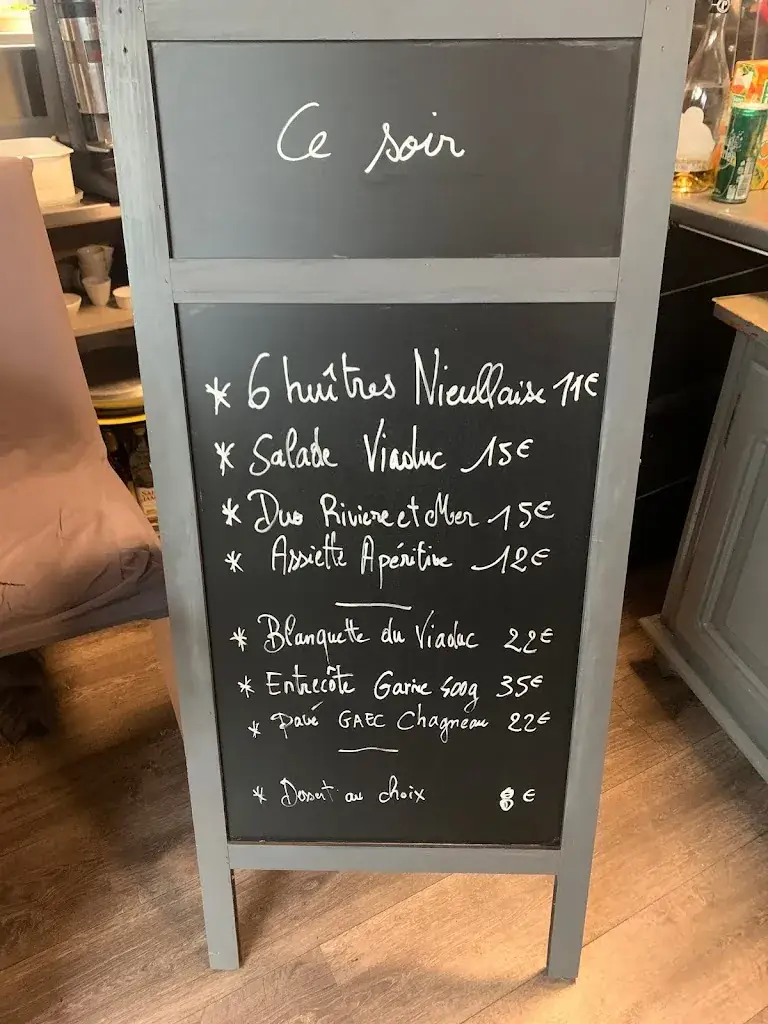 Ce soir
* 6 huîtres Nieullaise 11€
* Salade Viaduc 15€
* Duo Riviere et Mer 15€
* Assiette Apéritive 12€
* Blanquette du Viaduc 22€
* Entrecôte Garnie 500g 35€
* Pavé GAEC Chagneau 22€
* Dessert au choix 8€